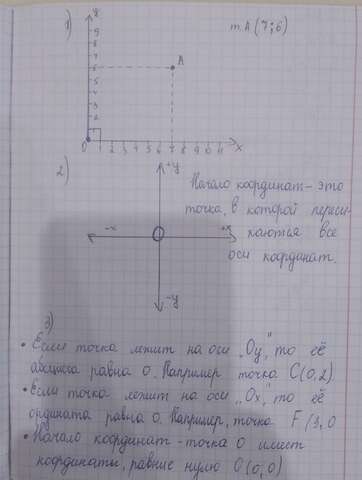 1)
т. А (7;6)
y
9
8
7
6
5
4
3
2
А
0 1 2 3 4 5 6 7 8 9 10 11 x
2)
+y
Начало координат – это
точка, в которой пересе-
каются все
оси координат.
-x
+x
0
-y
3)
• Если точка лежит на оси „Oy", то её
абсцисса равна 0. Например точка C(0,2)
• Если точка лежит на оси „Ox", то её
ордината равна 0. Например, точка F(3,0
• Начало координат - точка 0 имеет
координаты, равные нулю O(0,0)